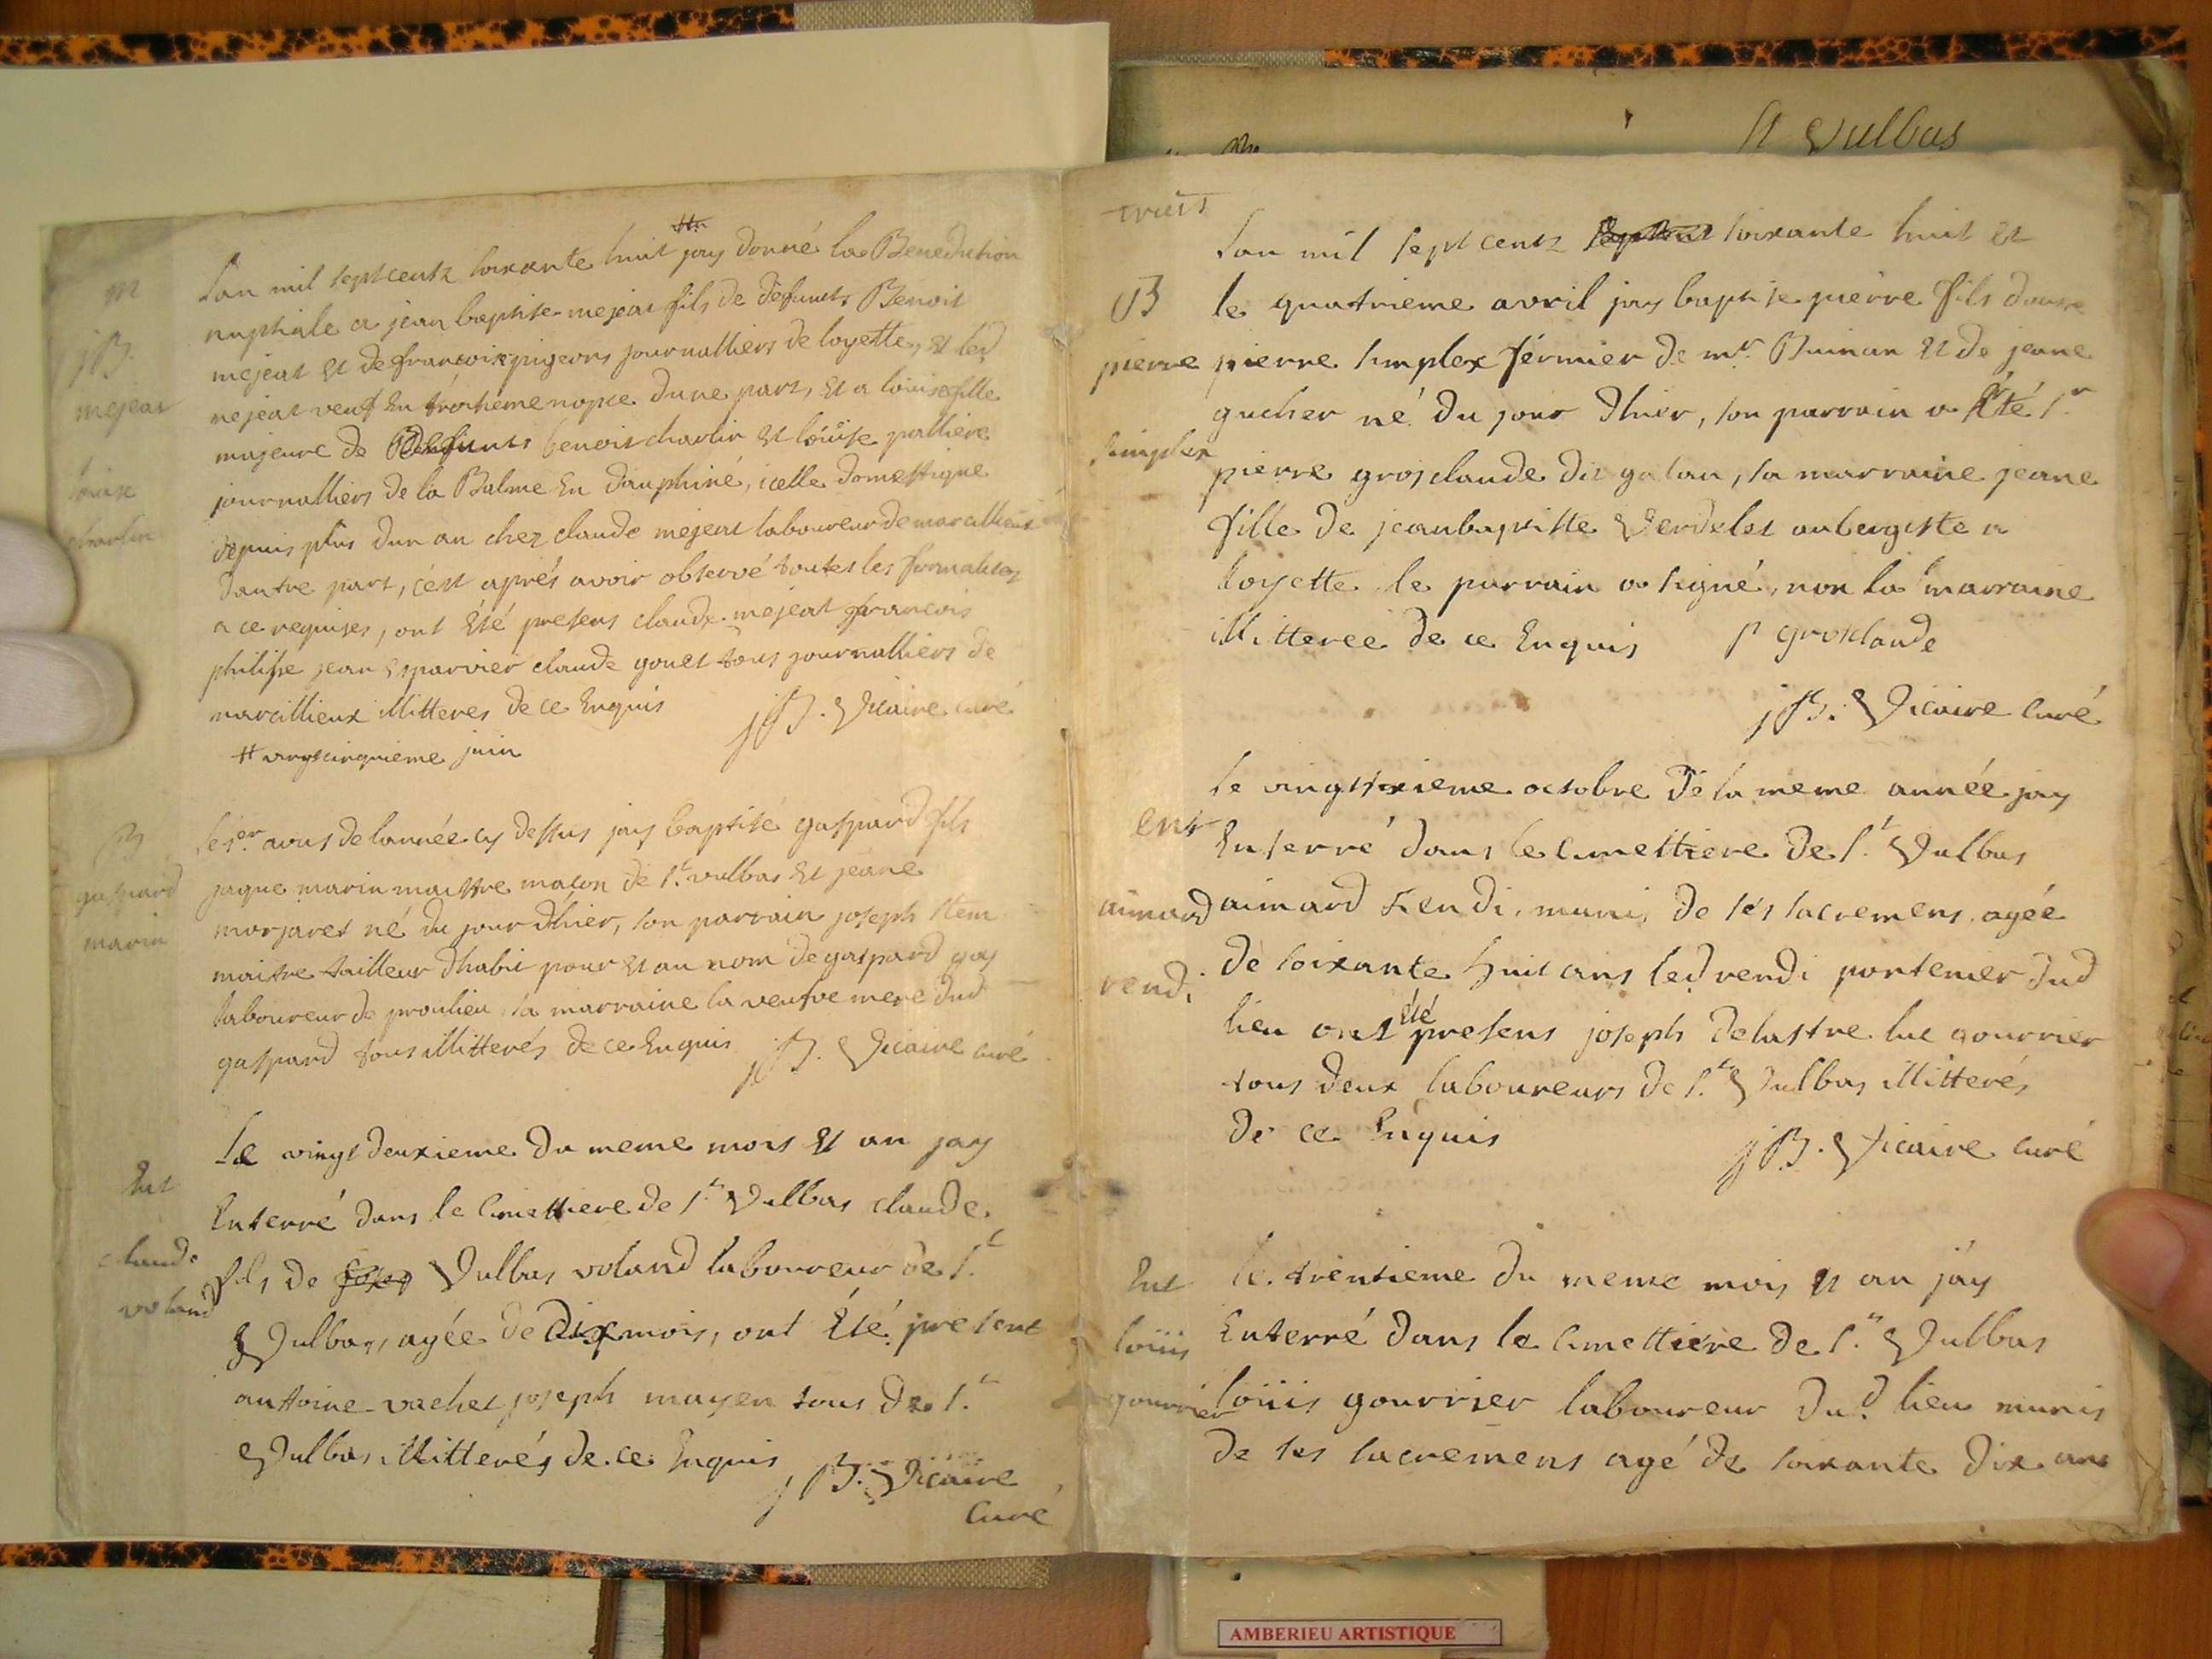 M
jB.
mejeat
louise
charlin
Lan mil septcentz soixante huit # jay donné la Benediction
nuptiale a jean baptiste mejeat fils de défunts Benoit
mejeat et de françoise pigeons journalliers de loyette, et led
mejeat veuf en troisieme nopce dune part, et a louise fille
majeure de Defunts benoit charlin et loüise palliere
journalliers de la Balme en dauphiné, icelle domestique
depuis plus dun an chez claude mejeat laboureur de marcillieux
dautre part, cést aprés avoir observé toutes les formalitez
a ce requises, ont été presens claude mejeat françois
philippe jean esparvier claude gouet tous journalliers de
marcillieux illitteres de ce enquis jB. Vicaire curé
# vingtcinquieme juin
B
gaspard
marin
le 1er aout de lannée cy dessus jay baptisé gaspard fils
jaque marin maistre maçon de St vulbas et jeane
morjaret né du jour dhier, son parrain joseph stem
maitre tailleur dhabit pour et au nom de gaspard gay
laboureur de proulieu sa marraine la veufve mere dud
gaspard tous illitterés de ce enquis jB. Vicaire curé
Ent
claude
voland
Le vingt deuxieme du meme mois et an jay
Enterré dans le cimettiere de St Vulbas claude
fils de Vulbas voland laboureur de St
Vulbas, agée de Dix mois, ont été present
antoine vachet joseph mayen tous de St
Vulbas illitterés de ce enquis jB. Vicaire
Curé
St Vulbas
trois
B
pierre
simplex
Lan mil sept centz soixante huit et
le quatrieme avril jay baptise pierre fils dautre
pierre simplex férmier de mr. Buinan et de jeane
gucher né du jour dhier, son parrain a été sr
pierre grosclaude dit galan, sa marraine jeane
fille de jeanbaptiste Verdelet aubergiste a
loyette le parrain a signé, non la marraine
illitterée de ce enquis P grosclaude
jB. Vicaire Curé
ent
aimard
rendi
le vingtsixieme octobre de la meme année jay
Enterré dans le cimettiere de St Vulbas
aimard rendi, munis de sés sacremens agée
de soixante huit ans led rendi portenier dud
lieu ont été presens joseph delastre luc gourrier
tous deux laboureurs de St Vulbas illitterés
de ce Enquis jB. Vicaire curé
Ent
loüis
gourrier
le trentieme du meme mois et an jáy
Enterré dans le cimettiere de St Vulbas
loüis gourrier laboureur dud. lieu munis
de ses sacremens agé de soixante dix ans
AMBERIEU ARTISTIQUE